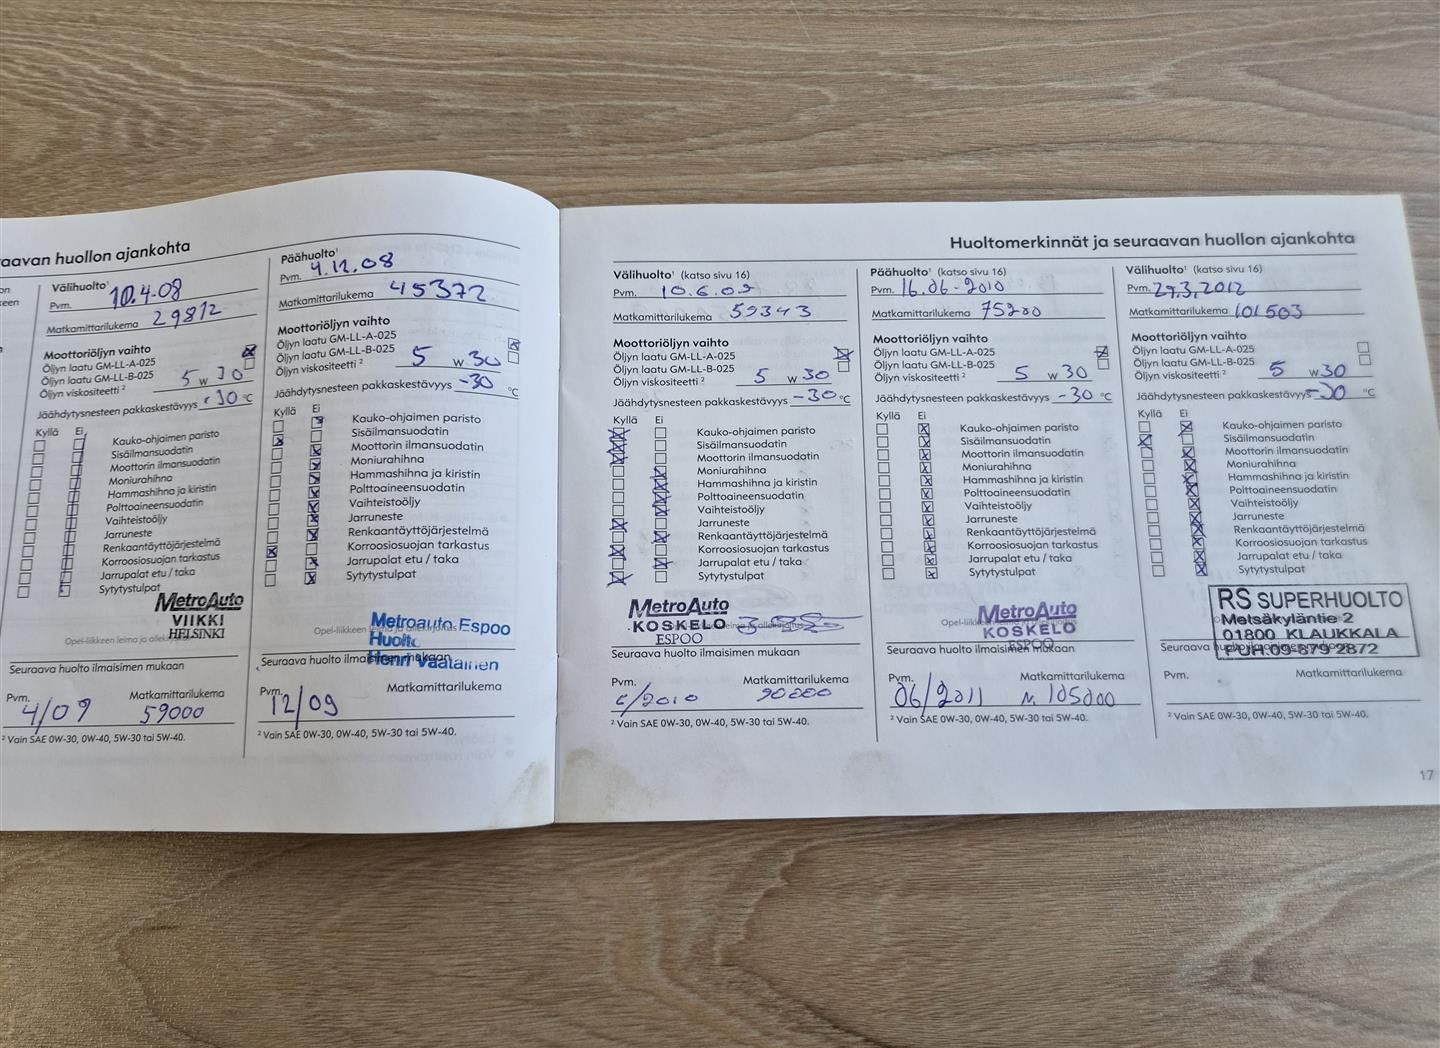 raavan huollon ajankohta
Välihuolto¹
Pvm. 10.4-08
Matkamittarilukema 29812
Moottoriöljyn vaihto
Öljyn laatu GM-LL-A-025
Öljyn laatu GM-LL-B-025
Öljyn viskositeetti ² 5 W 30
Jäähdytysnesteen pakkaskestävyys -30 °C
Kyllä Ei
Kauko-ohjaimen paristo
Sisäilmansuodatin
Moottorin ilmansuodatin
Moniurahihna
Hammashihna ja kiristin
Polttoaineensuodatin
Vaihteistoöljy
Jarruneste
Renkaantäyttöjärjestelmä
Korroosiosuojan tarkastus
Jarrupalat etu / taka
Sytytystulpat
MetroAuto
VIIKKI
HELSINKI
Opel-liikkeen leima ja
Seuraava huolto ilmaisimen mukaan
Pvm. Matkamittarilukema
4/09 59000
² Vain SAE 0W-30, 0W-40, 5W-30 tai 5W-40.
Päähuolto¹
Pvm. 4.12.08
Matkamittarilukema 45372
Moottoriöljyn vaihto
Öljyn laatu GM-LL-A-025
Öljyn laatu GM-LL-B-025
Öljyn viskositeetti ² 5 W 30
Jäähdytysnesteen pakkaskestävyys -30 °C
Kyllä Ei
Kauko-ohjaimen paristo
Sisäilmansuodatin
Moottorin ilmansuodatin
Moniurahihna
Hammashihna ja kiristin
Polttoaineensuodatin
Vaihteistoöljy
Jarruneste
Renkaantäyttöjärjestelmä
Korroosiosuojan tarkastus
Jarrupalat etu / taka
Sytytystulpat
Metroauto Espoo
Opel-liikkeen leima ja allekirjoitus
Huolto
Henri Väätäinen
Seuraava huolto ilmaisimen mukaan
Pvm. Matkamittarilukema
12/09
² Vain SAE 0W-30, 0W-40, 5W-30 tai 5W-40.
Huoltomerkinnät ja seuraavan huollon ajankohta
Välihuolto¹ (katso sivu 16)
Pvm. 10.6.09
Matkamittarilukema 59343
Moottoriöljyn vaihto
Öljyn laatu GM-LL-A-025
Öljyn laatu GM-LL-B-025
Öljyn viskositeetti ² 5 W 30
Jäähdytysnesteen pakkaskestävyys -30 °C
Kyllä Ei
Kauko-ohjaimen paristo
Sisäilmansuodatin
Moottorin ilmansuodatin
Moniurahihna
Hammashihna ja kiristin
Polttoaineensuodatin
Vaihteistoöljy
Jarruneste
Renkaantäyttöjärjestelmä
Korroosiosuojan tarkastus
Jarrupalat etu / taka
Sytytystulpat
MetroAuto
KOSKELO
ESPOO
Seuraava huolto ilmaisimen mukaan
Pvm. Matkamittarilukema
6/2010 90000
² Vain SAE 0W-30, 0W-40, 5W-30 tai 5W-40.
Päähuolto¹ (katso sivu 16)
Pvm. 16.06-2010
Matkamittarilukema 75200
Moottoriöljyn vaihto
Öljyn laatu GM-LL-A-025
Öljyn laatu GM-LL-B-025
Öljyn viskositeetti ² 5 W 30
Jäähdytysnesteen pakkaskestävyys -30 °C
Kyllä Ei
Kauko-ohjaimen paristo
Sisäilmansuodatin
Moottorin ilmansuodatin
Moniurahihna
Hammashihna ja kiristin
Polttoaineensuodatin
Vaihteistoöljy
Jarruneste
Renkaantäyttöjärjestelmä
Korroosiosuojan tarkastus
Jarrupalat etu / taka
Sytytystulpat
MetroAuto
KOSKELO
ESPOO
Seuraava huolto ilmaisimen mukaan
Pvm. Matkamittarilukema
06/2011 105000
² Vain SAE 0W-30, 0W-40, 5W-30 tai 5W-40.
Välihuolto¹ (katso sivu 16)
Pvm. 29.3.2012
Matkamittarilukema 101503
Moottoriöljyn vaihto
Öljyn laatu GM-LL-A-025
Öljyn laatu GM-LL-B-025
Öljyn viskositeetti ² 5 W 30
Jäähdytysnesteen pakkaskestävyys -30 °C
Kyllä Ei
Kauko-ohjaimen paristo
Sisäilmansuodatin
Moottorin ilmansuodatin
Moniurahihna
Hammashihna ja kiristin
Polttoaineensuodatin
Vaihteistoöljy
Jarruneste
Renkaantäyttöjärjestelmä
Korroosiosuojan tarkastus
Jarrupalat etu / taka
Sytytystulpat
RS SUPERHUOLTO
Metsäkyläntie 2
01800 KLAUKKALA
PUH.09-879 2872
Seuraava
Pvm. Matkamittarilukema
² Vain SAE 0W-30, 0W-40, 5W-30 tai 5W-40.
17